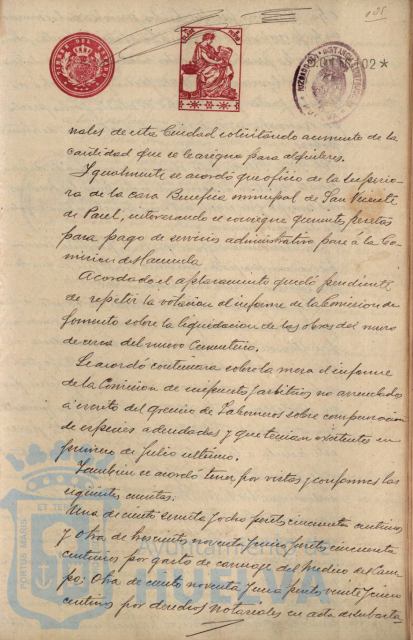 nales de esta Ciudad solicitando aumento de la
cantidad que se le asigna para alquileres.
Igualmente se acordó que oficio de la Superio-
ra de la casa Benefica municipal de San Vicente
de Paul, interesando se consigne quinientas pesetas
para pago de servicio administrativo pase á la Co-
mision de Hacienda
Acordado el aplazamiento quedó pendiente
de repetir la votacion el informe de la Comision de
fomento sobre la liquidacion de las obras del muro
de cerca del nuevo Cementerio.
Se acordó continuara sobre la mesa el informe
de la Comision de impuestos y arbitrios no arrendados
á escrito del gremio de Taberneros sobre
de especies adeudadas y que tenian existentes en
primero de Julio ultimo.
Tambien se acordó tener por vistas y conformes las
siguientes cuentas.
Una de ciento sesenta y ocho pesetas cincuenta centimos
y otra de trescientos noventa y cinco pesetas cincuenta
centimos por gasto de carruage del Medico de Cam-
po; Otra de ciento noventa y una pesetas veinte y cinco
centimos por derechos notariales en acta de subasta
PORTUS MARIS
ET TE
Ayuntamiento
HUELVA